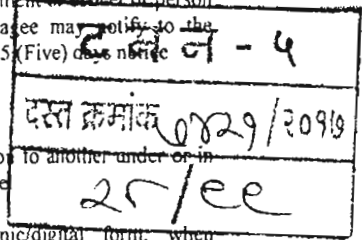 agee may notify to the
ट न न - ५
5 (Five) days notice
दस्त क्रमांक ७४२१/२०१७
to another under or in
२८/९९
nic/digital form, when